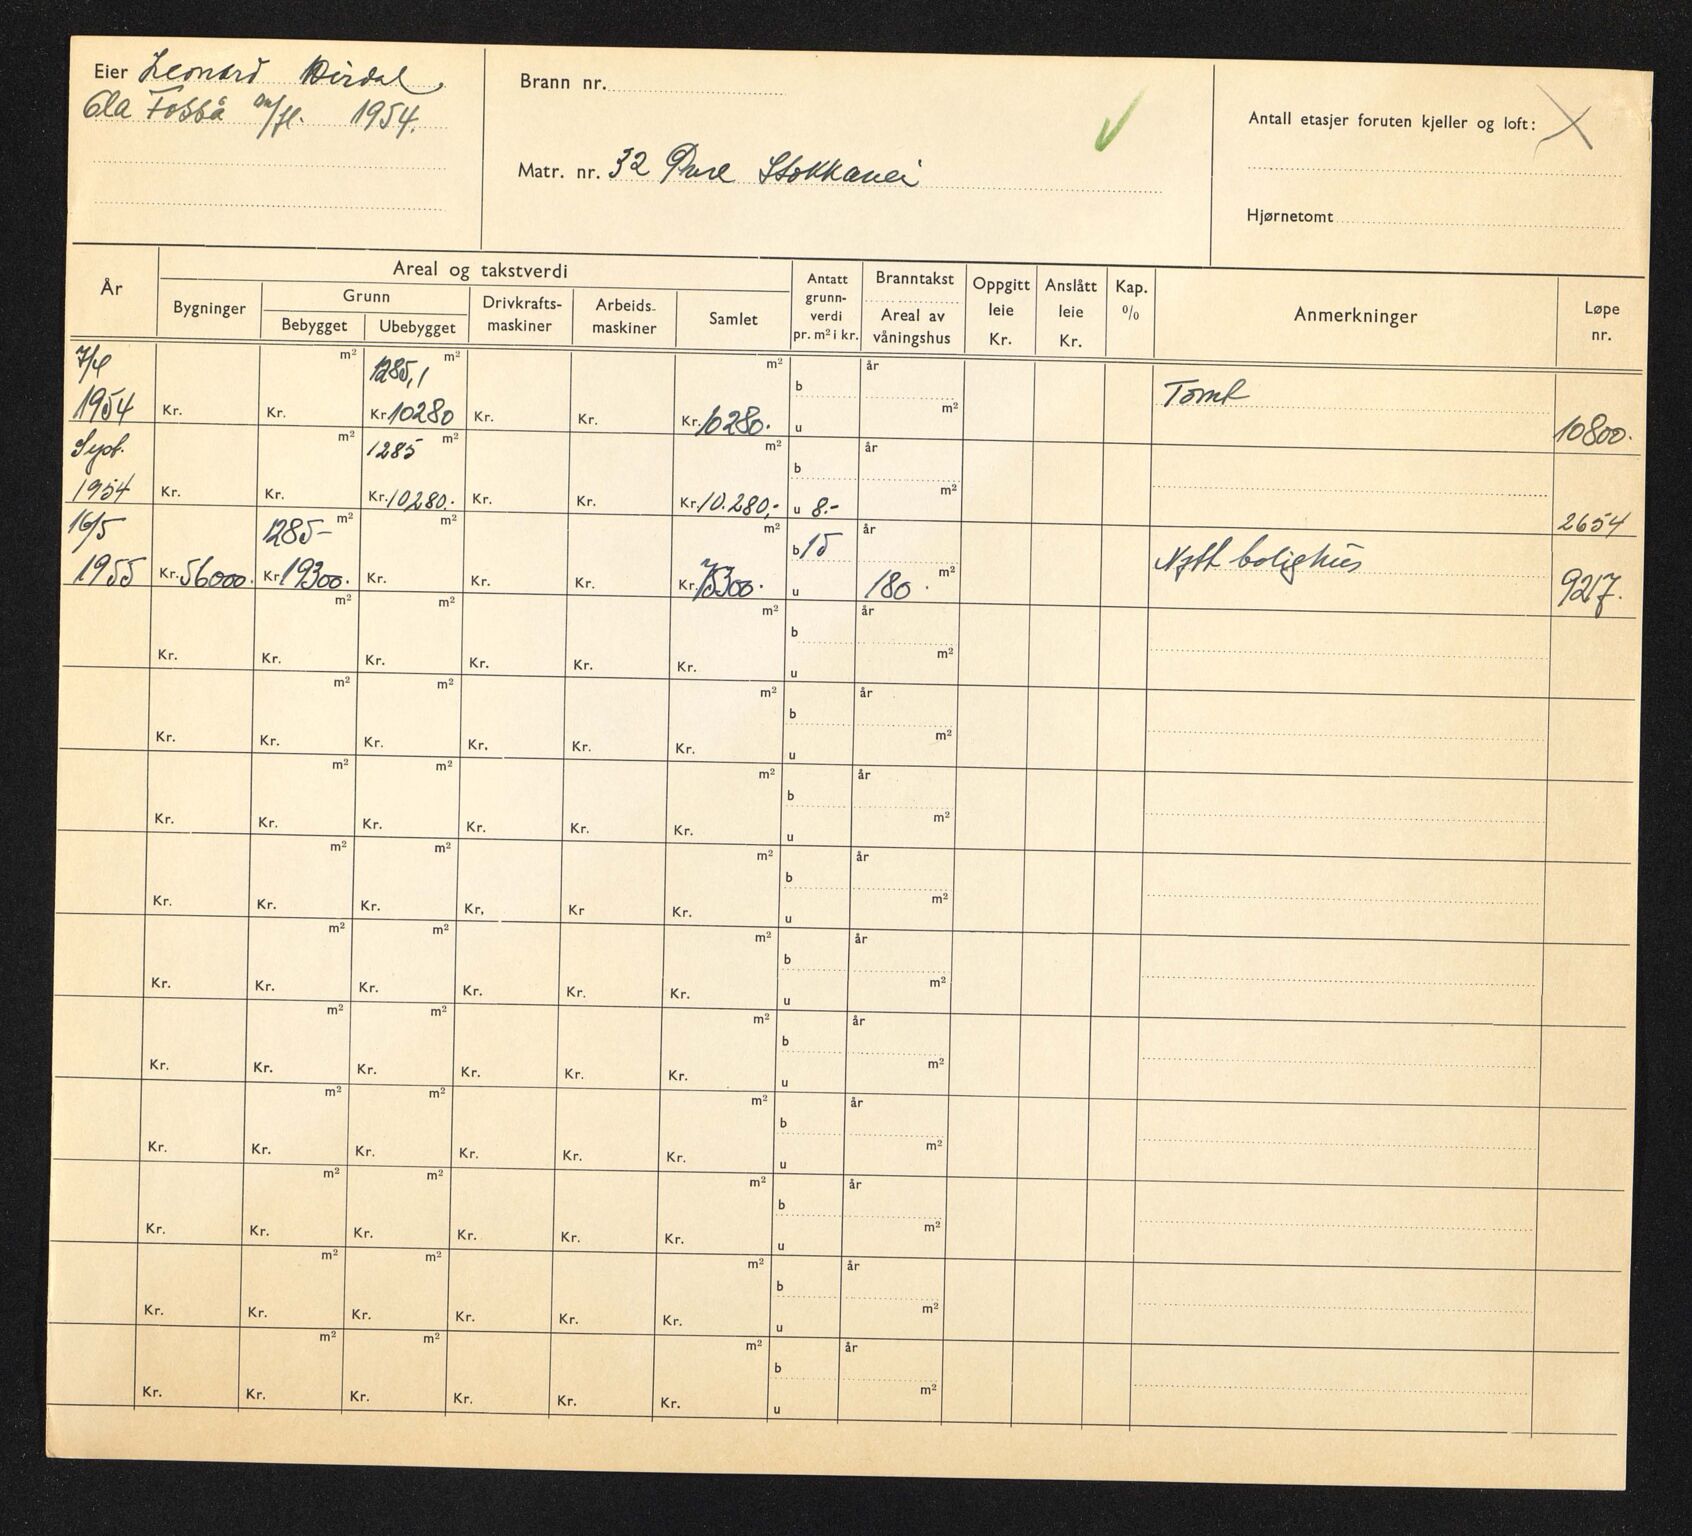 Eier Leonard Dirdal.
Ola Fosså m/fl. 1954.
Brann nr.
Matr. nr. 32 Øvre Stokkavei
Antall etasjer foruten kjeller og loft:
Hjørnetomt
År
Areal og takstverdi
Bygninger
Grunn
Bebygget Ubebygget
Drivkrafts-
maskiner
Arbeids-
maskiner
Samlet
Antatt
grunn-
verdi
pr. m² i kr.
Branntakst
Areal av
våningshus
Oppgitt
leie
Kr.
Anslått
leie
Kr.
Kap.
%
Anmerkninger
Løpe
nr.
7/4 m² 1285,1 m² m² b år Tomt
1954 Kr. Kr. Kr. 10280 Kr. Kr. Kr. 10280. u m² 10800.
Sept. m² 1285 m² m² b år
1954 Kr. Kr. Kr. 10280. Kr. Kr. Kr. 10.280,- u 8.- m² 2654
16/5 1285- m² m² m² b 15 år Nytt bolighus
1955 Kr. 56000. Kr. 19300. Kr. Kr. Kr. Kr. 75300. u 180. m² 9217.
m² m² m² b år
Kr. Kr. Kr. Kr. Kr. Kr. u m²
m² m² m² b år
Kr. Kr. Kr. Kr. Kr. Kr. u m²
m² m² m² b år
Kr. Kr. Kr. Kr. Kr. Kr. u m²
m² m² m² b år
Kr. Kr. Kr. Kr. Kr Kr. u m²
m² m² m² b år
Kr. Kr. Kr. Kr. Kr. Kr. u m²
m² m² m² b år
Kr. Kr. Kr. Kr. Kr. Kr. u m²
m² m² m² b år
Kr. Kr. Kr. Kr. Kr. Kr. u m²
m² m² m² b år
Kr. Kr. Kr. Kr. Kr. Kr. u m²
m² m² m² b år
Kr. Kr. Kr. Kr. Kr. Kr. u m²
m² m² m² b år
Kr. Kr. Kr. Kr. Kr. Kr. u m²